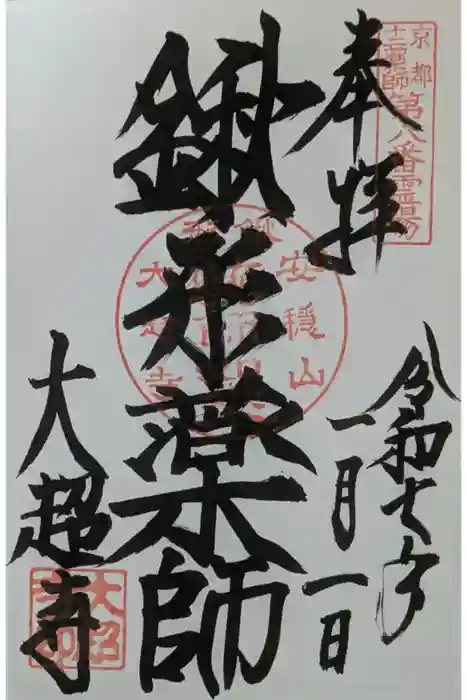 京都
十二薬師
第八番霊場
奉拝
令和七年
一月一日
鍬形薬師
安穏山
大超寺
大超寺